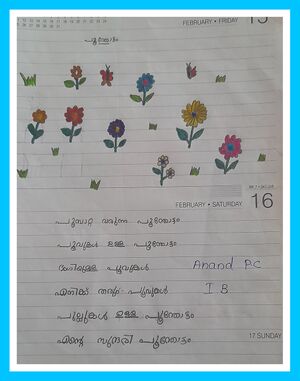 FEBRUARY • FRIDAY 15
പൂന്തോട്ടം
WK 7 • 047-318
FEBRUARY • SATURDAY 16
പൂമ്പാറ്റ വരുന്ന പൂന്തോട്ടം
പൂവുകൾ ഉള്ള പൂന്തോട്ടം
ഭംഗിയുള്ള പൂവുകൾ Anand P.C
എനിക്ക് തരും പൂവുകൾ I B
പുല്ലുകൾ ഉള്ള പൂന്തോട്ടം
എന്റെ സുന്ദരി പൂന്തോട്ടം
17 SUNDAY